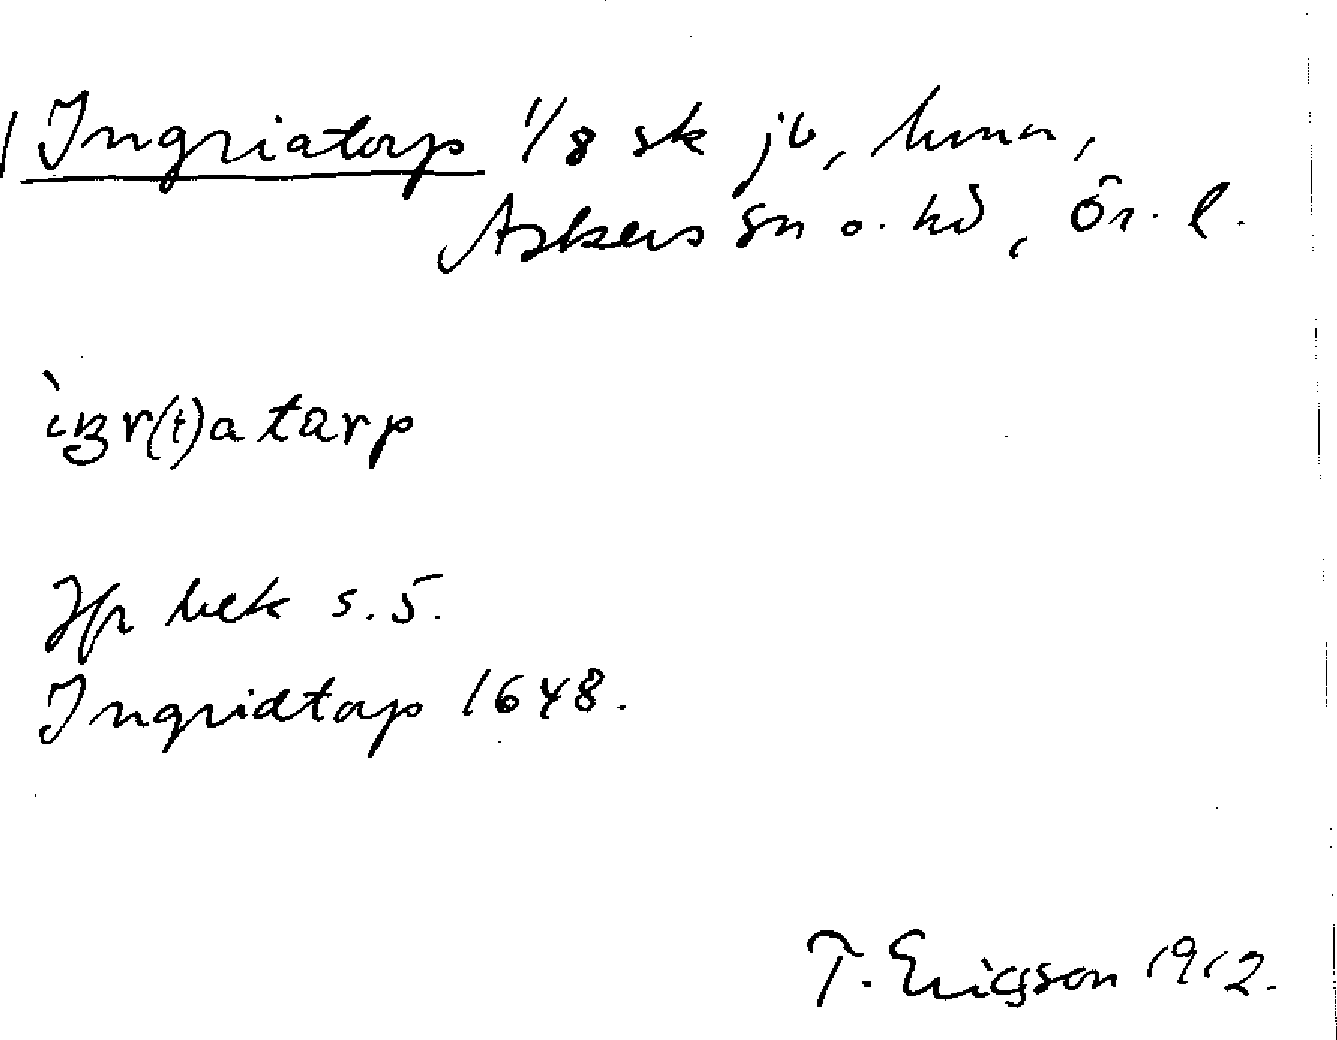 Ingriatorp 1/8 sk jb, hmn,
Askers sn o. hd, Ör. l.
ìŋr(ı)a tarp
Jfr bek s. 5.
Ingridtorp 1648.
T. Ericson 1912.